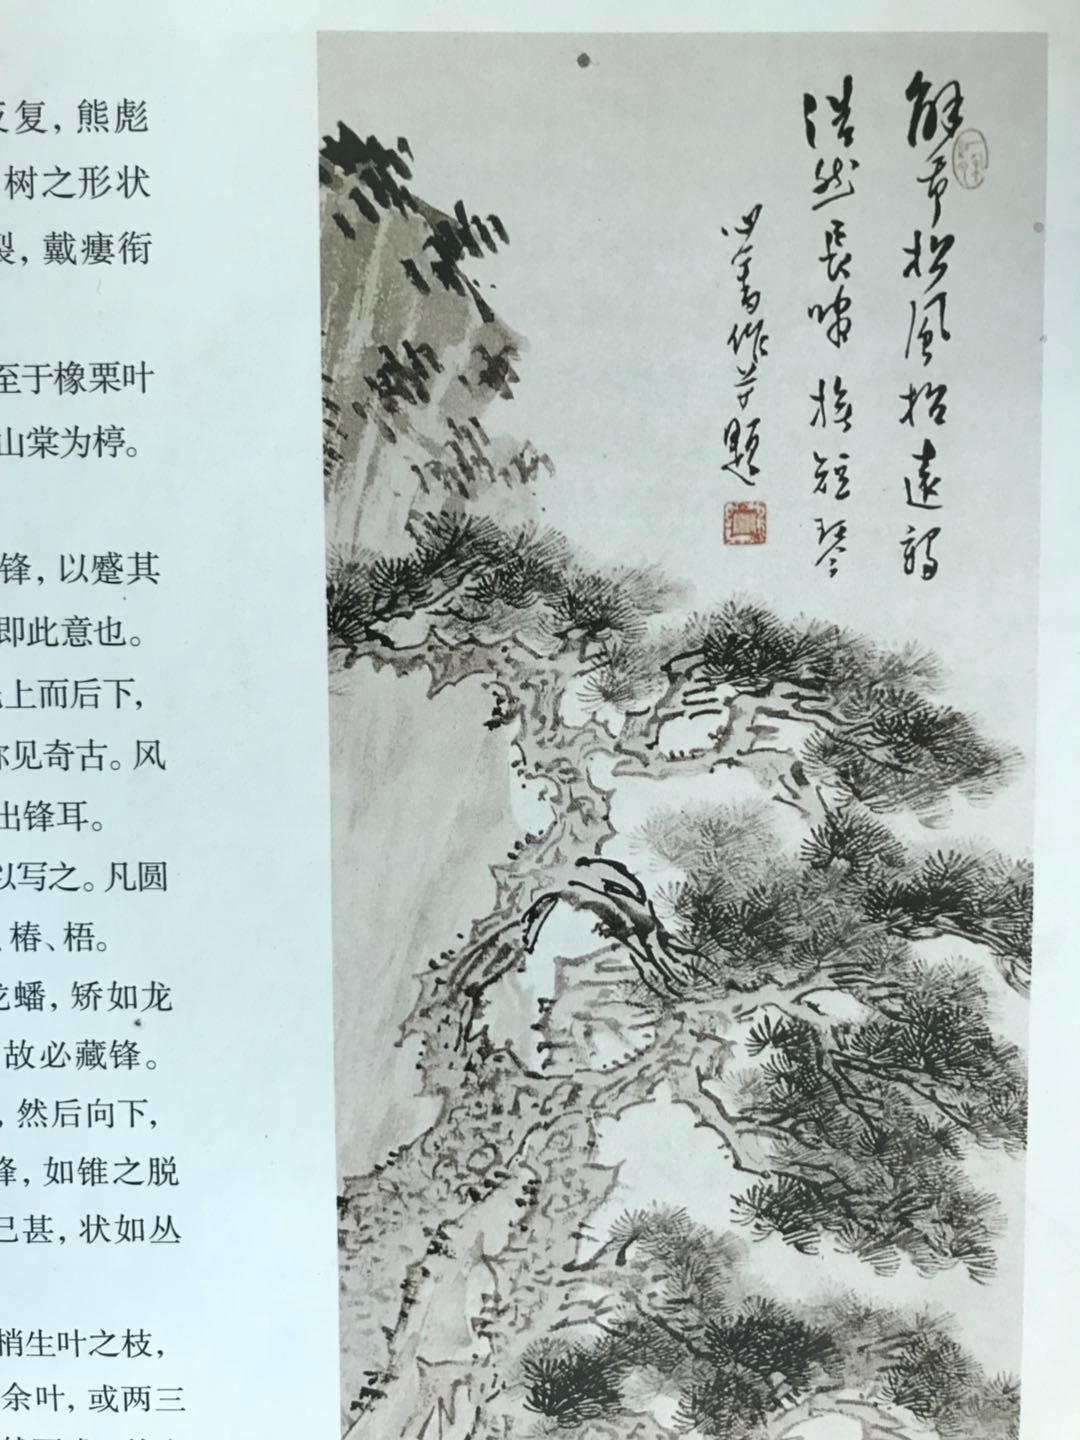 反复，熊彪
树之形状
裂，戴瘿衔
至于橡栗叶
山棠为楟。
锋，以蹙其
即此意也。
上而后下，
你见奇古。风
出锋耳。
以写之。凡圆
椿、梧。
蟠，矫如龙
故必藏锋。
，然后向下，
锋，如锥之脱
已甚，状如丛
梢生叶之枝，
余叶，或两三
解带松風招遠鶴
浩然長嘯撫短琴
心畬作并題